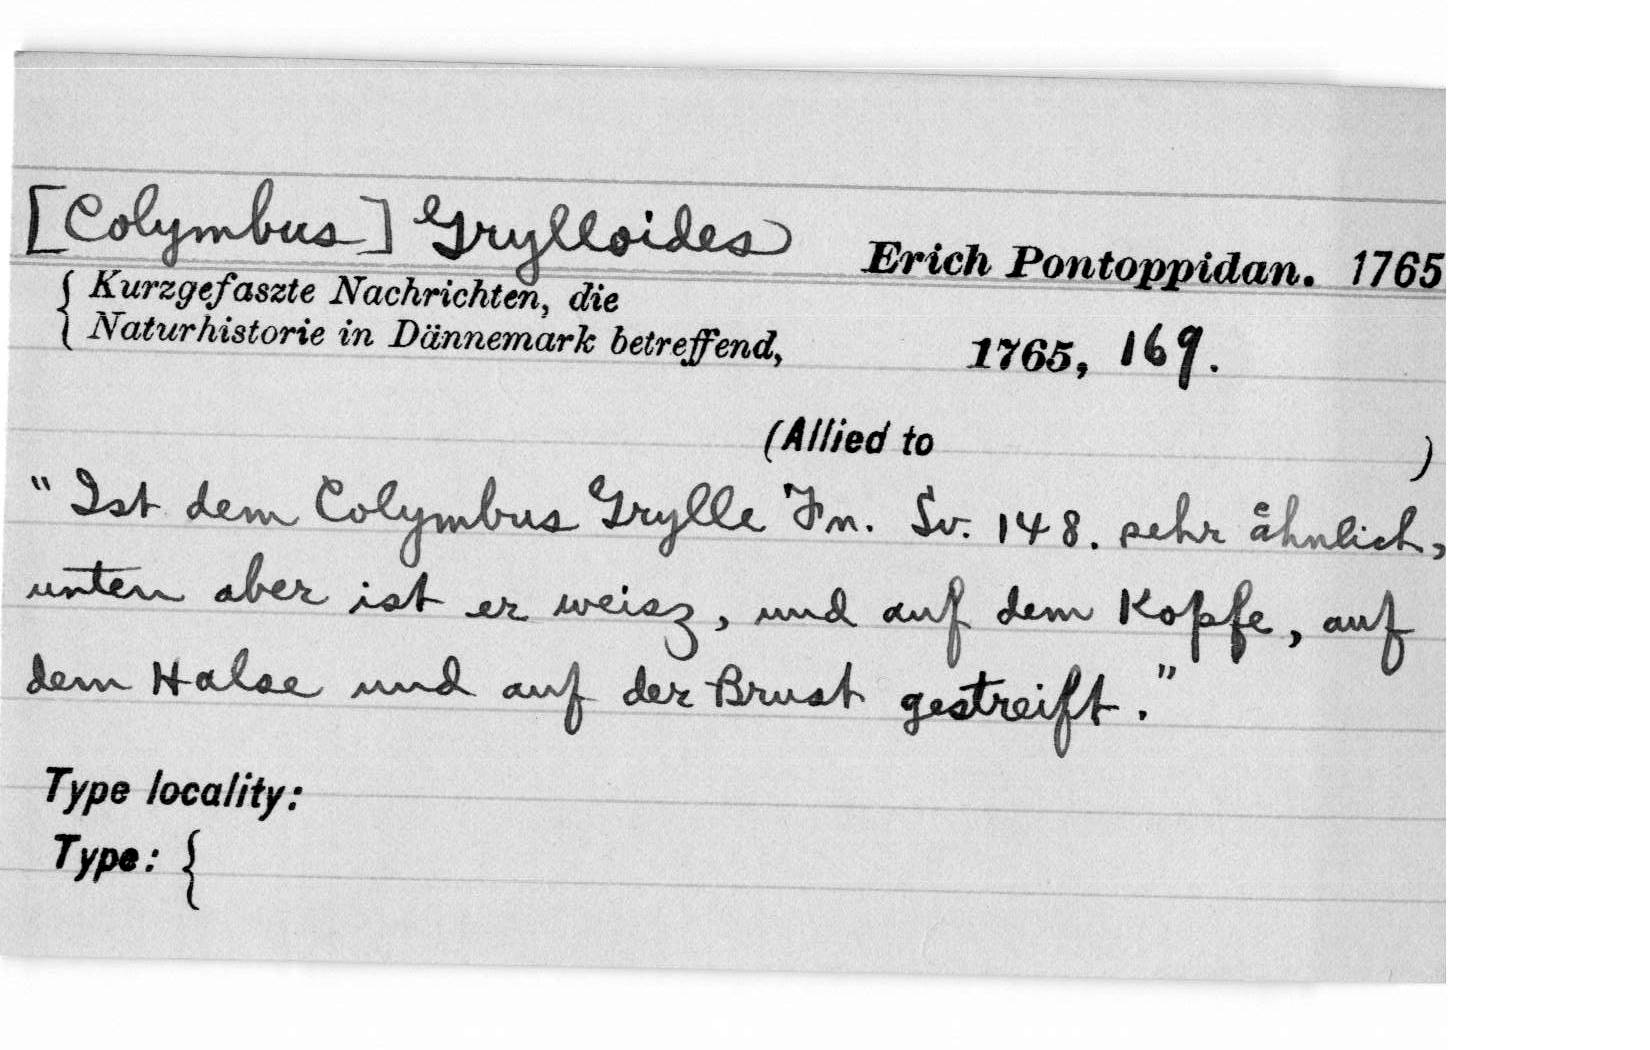 [Colymbus] Grylloides Erich Pontoppidan. 1765
{ Kurzgefaszte Nachrichten, die
Naturhistorie in Dännemark betreffend, 1765, 169.
(Allied to )
"Ist dem Colymbus Grylle Fn. Sv. 148. sehr åhnlich,
unten aber ist er weisz, und auf dem Kopfe, auf
dem Halse und auf der Brust gestreift."
Type locality:
Type: {